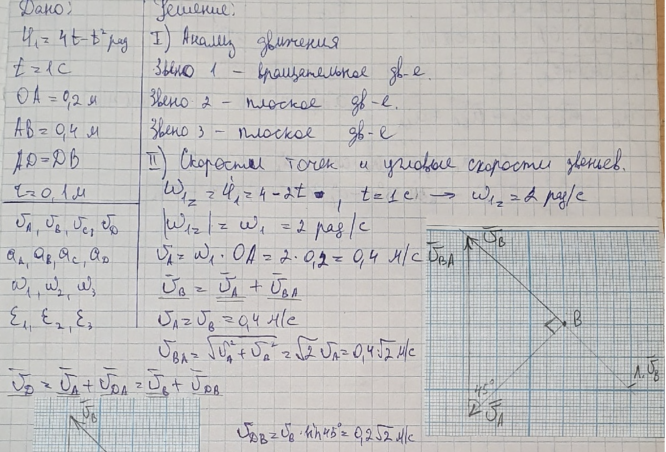 Дано:
φ₁ = 4t - t² рад
t = 1 c
OA = 0,2 м
AB = 0,4 м
AD = DB
r = 0,1 м
v̄A, v̄B, v̄C, v̄D
aA, aB, aC, aD
ω₁, ω₂, ω₃
ε₁, ε₂, ε₃
Решение:
I) Анализ движения
Звено 1 – вращательное дв-е.
Звено 2 – плоское дв-е.
Звено 3 – плоское дв-е
II) Скорости точек и угловые скорости звеньев.
ω₁z = φ̇₁ = 4 - 2t, t = 1 c → ω₁z = 2 рад/с
|ω₁z| = ω₁ = 2 рад/с
vA = ω₁ · OA = 2 · 0,2 = 0,4 м/с
v̄B = v̄A + v̄BA
vA = vB = 0,4 м/с
vBA = √(vA² + vA²) = √2 vA = 0,4√2 м/с
v̄D = v̄A + v̄DA = v̄B + v̄DB
v̄B
vDB = vB · sin 45° = 0,2√2 м/с
v̄B
v̄BA
B
45°
v̄A
v̄B